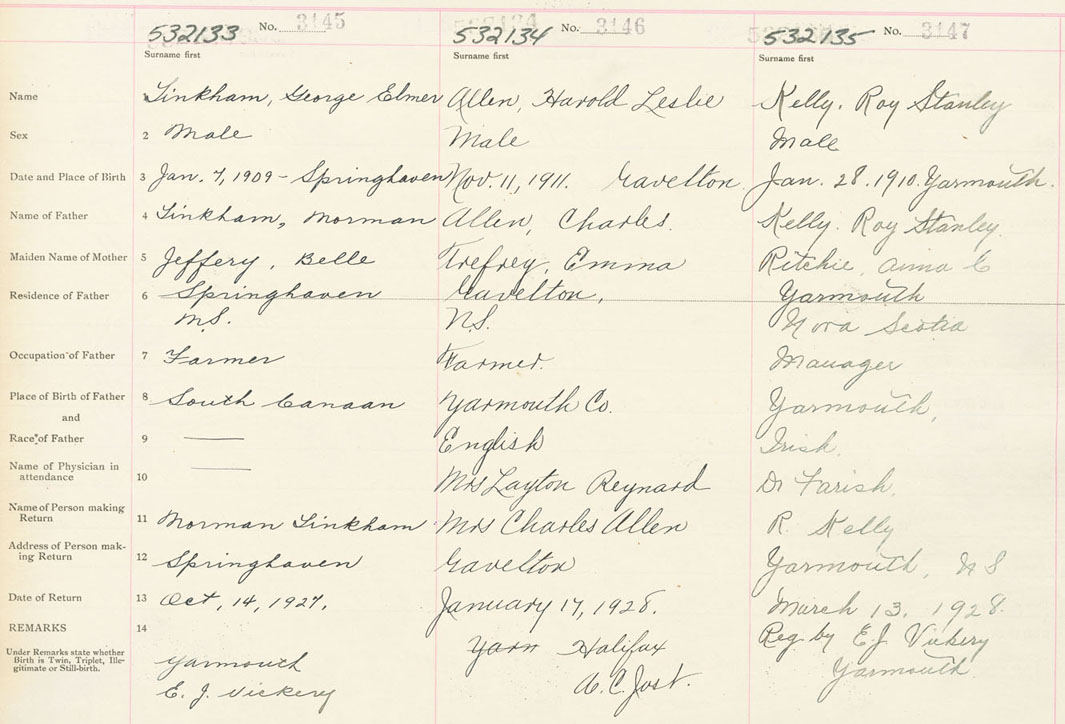 532133 No. 3145 532134 No. 3146 532135 No. 3147
Surname first Surname first Surname first
Name 1 Tinkham, George Elmer Allen, Harold Leslie Kelly. Roy Stanley
Sex 2 Male Male Male
Date and Place of Birth 3 Jan. 7, 1909 - Springhaven Nov. 11, 1911. Gavelton Jan. 28. 1910. Yarmouth.
Name of Father 4 Tinkham, Norman Allen, Charles. Kelly. Roy Stanley.
Maiden Name of Mother 5 Jeffery, Belle Trefrey, Emma Ritchie, Anna C
Residence of Father 6 Springhaven Gavelton, Yarmouth
N.S. N.S. Nova Scotia
Occupation of Father 7 Farmer Farmer. Manager
Place of Birth of Father 8 South Canaan Yarmouth Co. Yarmouth,
and
Race of Father 9 English Irish.
Name of Physician in
attendance 10 Mrs Layton Reynard Dr Farish.
Name of Person making
Return 11 Norman Tinkham Mrs Charles Allen R. Kelly
Address of Person mak-
ing Return 12 Springhaven Gavelton Yarmouth, N S
Date of Return 13 Oct, 14, 1927. January 17, 1928. March 13. 1928.
REMARKS 14 Yarm Halifax Reg. by E.J. Vickery
Under Remarks state whether
Birth is Twin, Triplet, Ille-
gitimate or Still-birth.
Yarmouth A. C. Jost. Yarmouth
E. J. Vickery